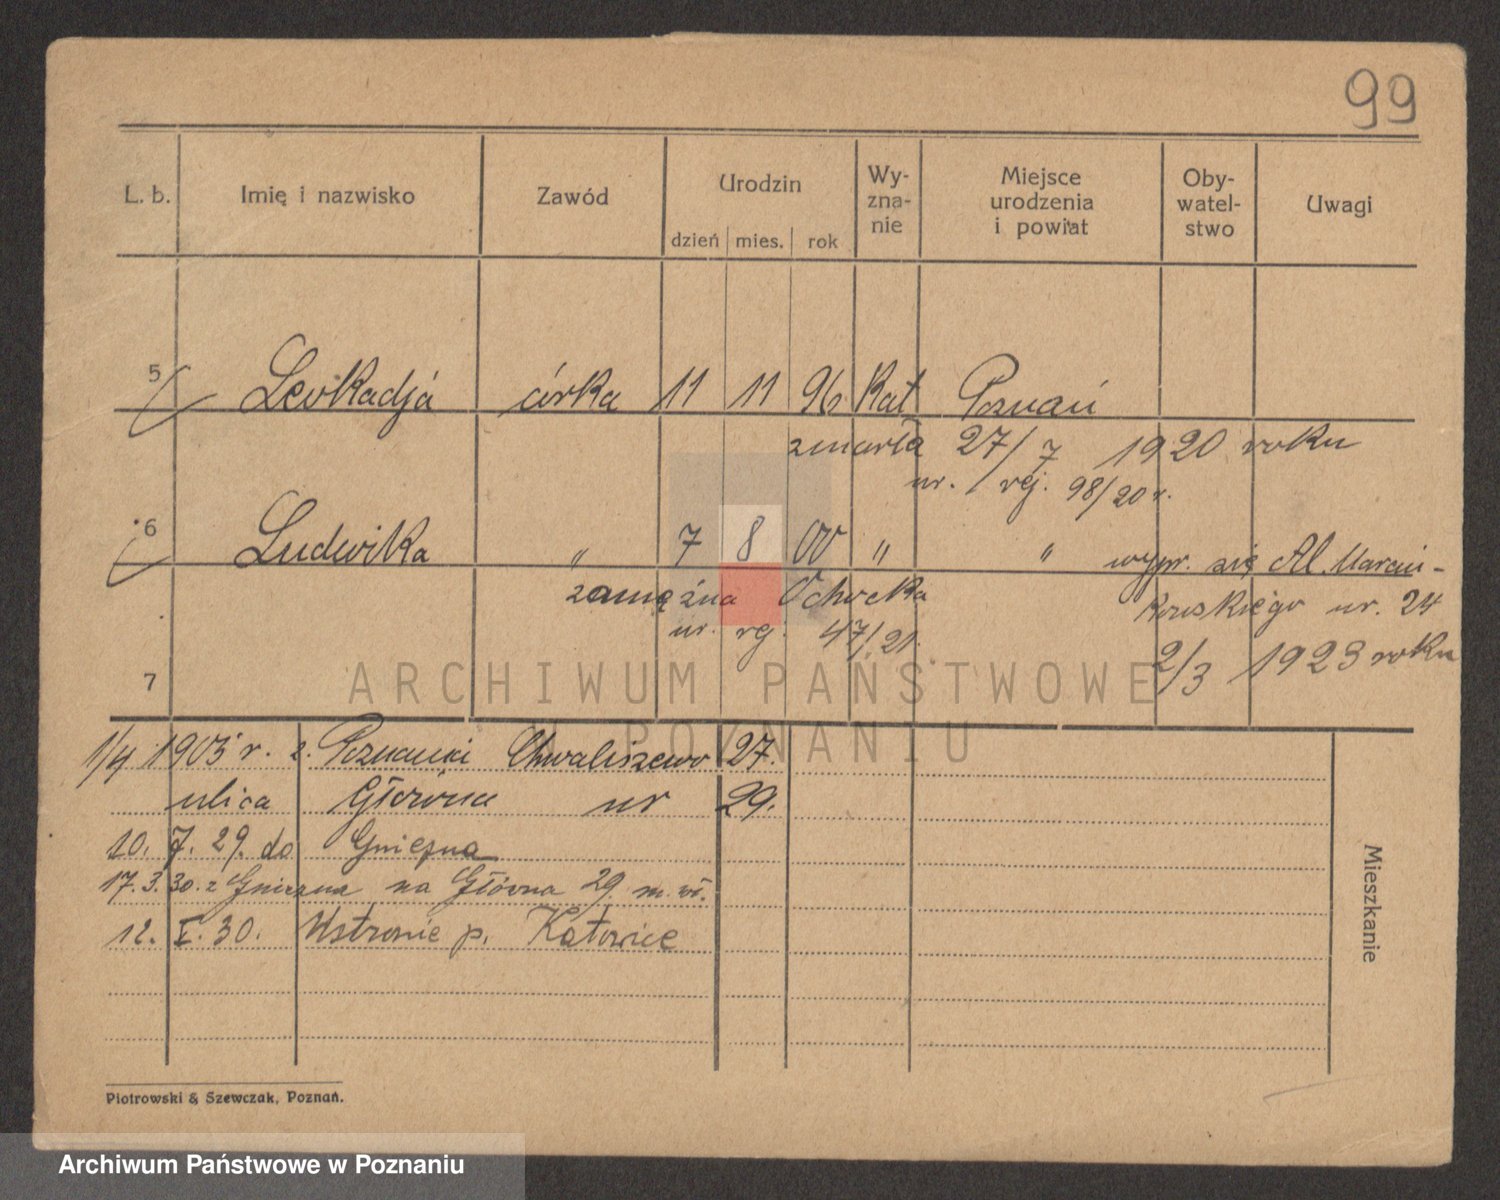 99
L. b. Imię i nazwisko Zawód Urodzin Wy-zna-nie Miejsce urodzenia i powiat Oby-watel-stwo Uwagi
dzień mies. rok
5 Leokadja córka 11 11 96 Kat Poznań
zmarła 27/7 1920 roku
nr. rej. 98/20 r.
6 Ludwika " 7 8 00 " " wypr. się Al. Marcin-
zamężna Ochocka kowskiego nr. 24
nr. rej. 47/21. 2/3 1923 roku
7
ARCHIWUM PAŃSTWOWE
W POZNANIU
1/4 1903 r. z. Poznania Chwaliszewo 27.
ulica Główna nr 29.
10. 7. 29. do Gniezna
17. 3. 30. z Gniezna na Główna 29. m. wł.
12. V. 30. Ustronie p. Katowice
Mieszkanie
Piotrowski & Szewczak, Poznań.
Archiwum Państwowe w Poznaniu